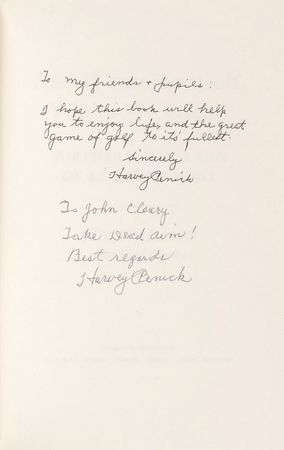 To my friends + pupils:
I hope this book will help
you to enjoy life, and the great
game of golf to it's fullest.
Sincerely
Harvey Penick
To John Cleary
Take Dead aim!
Best regards
Harvey Penick